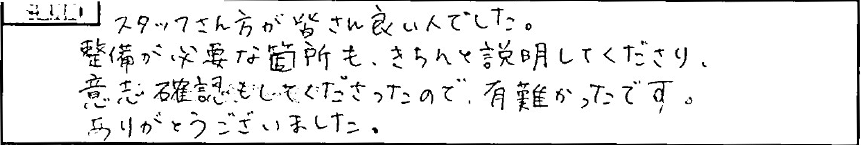 スタッフさん方が皆さん良い人でした。
整備が必要な箇所も、きちんと説明してくださり、
意志確認もしてくださったので、有難かったです。
ありがとうございました。